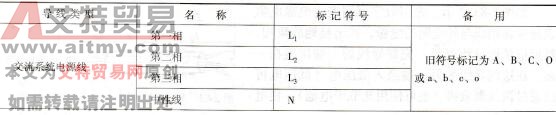 导线类型 名 称 标记符号 备 用
交流系统电源线 第一相 L₁ 旧符号标记为 A、B、C、O
或 a、b、c、o
第二相 L₂
第三相 L₃
中性线 N
艾特贸易网
www.aitmy.com
本文为艾特贸易网原创
如需转载请注明出处